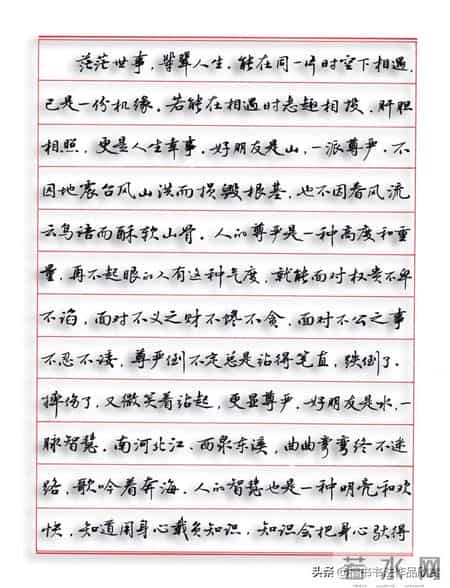 茫茫世事，攀攀人生，能在同一片时空下相遇，
已是一份机缘。若能在相遇时志趣相投，肝胆
相照，更是人生幸事。好朋友是山，一派尊严。不
因地震台风山洪而损毁根基，也不因春风流
云鸟语而酥软山骨。人的尊严是一种高度和重
量，再不起眼的人有这种气度，就能面对权贵不卑
不谄，面对不义之财不馋不贪，面对不公之事
不忍不诿，尊严倒不定总是站得笔直，跌倒了，
摔伤了，又微笑着站起，更显尊严。好朋友是水，一
脉智慧。南河北江、西泉东溪，曲曲弯弯终不迷
络，歌吟着奔海。人的智慧也是一种明亮和欢
快，知道用身心载负知识，知识会把身心驮得
头条
若水网